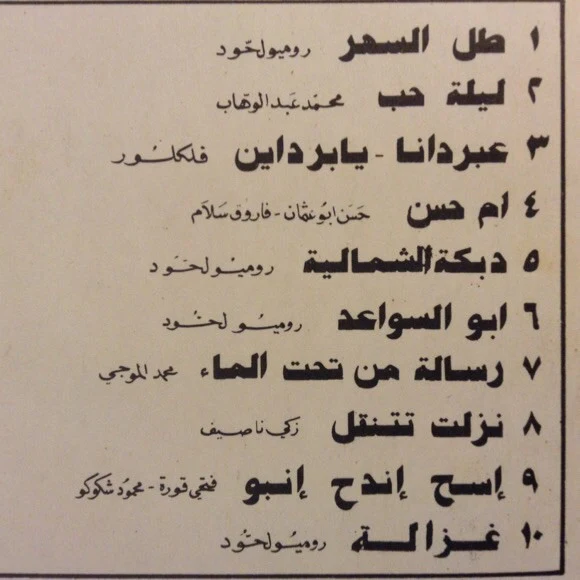 ١ طل السهر روميو لحّود
٢ ليلة حب محمّد عَبد الوهّاب
٣ عبردانا - يابرداين فلكلور
٤ ام حسن حَسَن ابو عثمان - فاروق سَلَام
٥ دبكة الشمالية روميو لحَود
٦ ابو السواعد روميو لحُود
٧ رسالة من تحت الماء محمد الموجي
٨ نزلت تتنقل زكي ناصيف
٩ إسح إندح إنبو فتحي قورة - محمُود شكوكو
١٠ غزالة روميُو لحّود